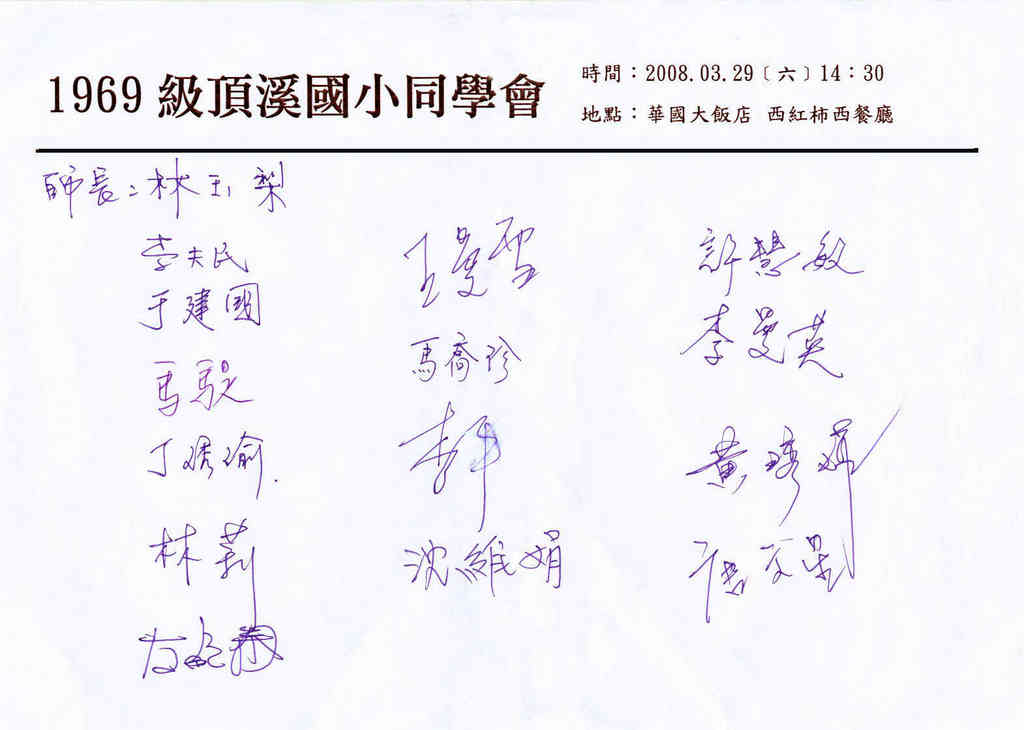 1969 級頂溪國小同學會
時間：2008.03.29〔六〕14：30
地點：華國大飯店 西紅柿西餐廳
師長：林玉梨
李夫民
王曼雪
許慧敏
于建國
李曼英
馬喬珍
馬駿
丁琚瑜
林莉
沈維娟